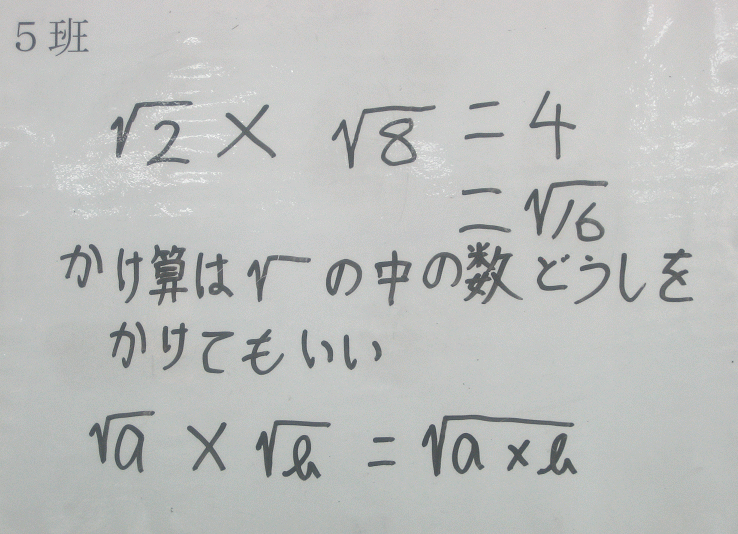 5班
√2 × √8 = 4
= √16
かけ算は√の中の数どうしを
かけてもいい
√a × √b = √a×b